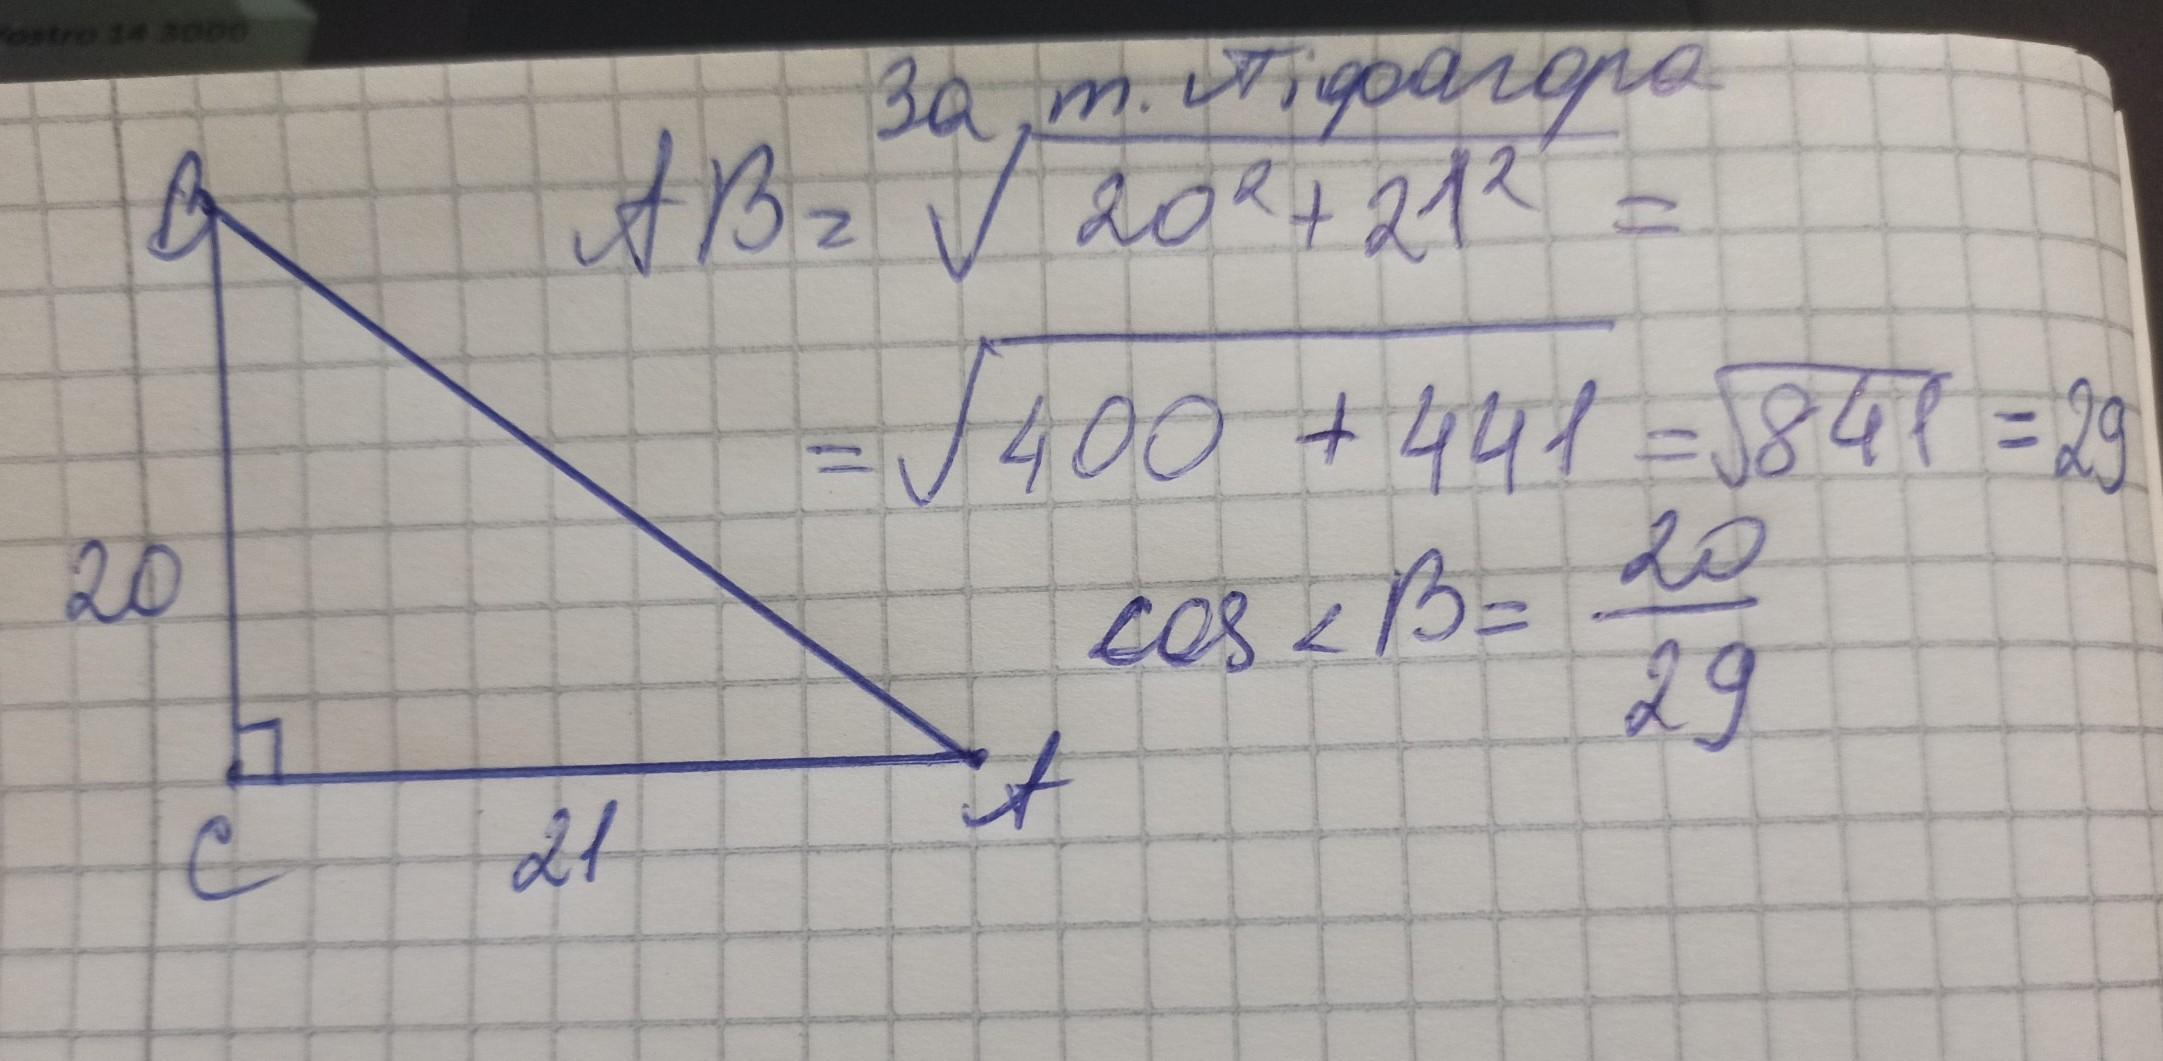 Vostro 14 3000
За т. Піфагора
AB = √20² + 21² =
= √400 + 441 = √841 = 29
cos < B = 20/29
B
20
C
21
A